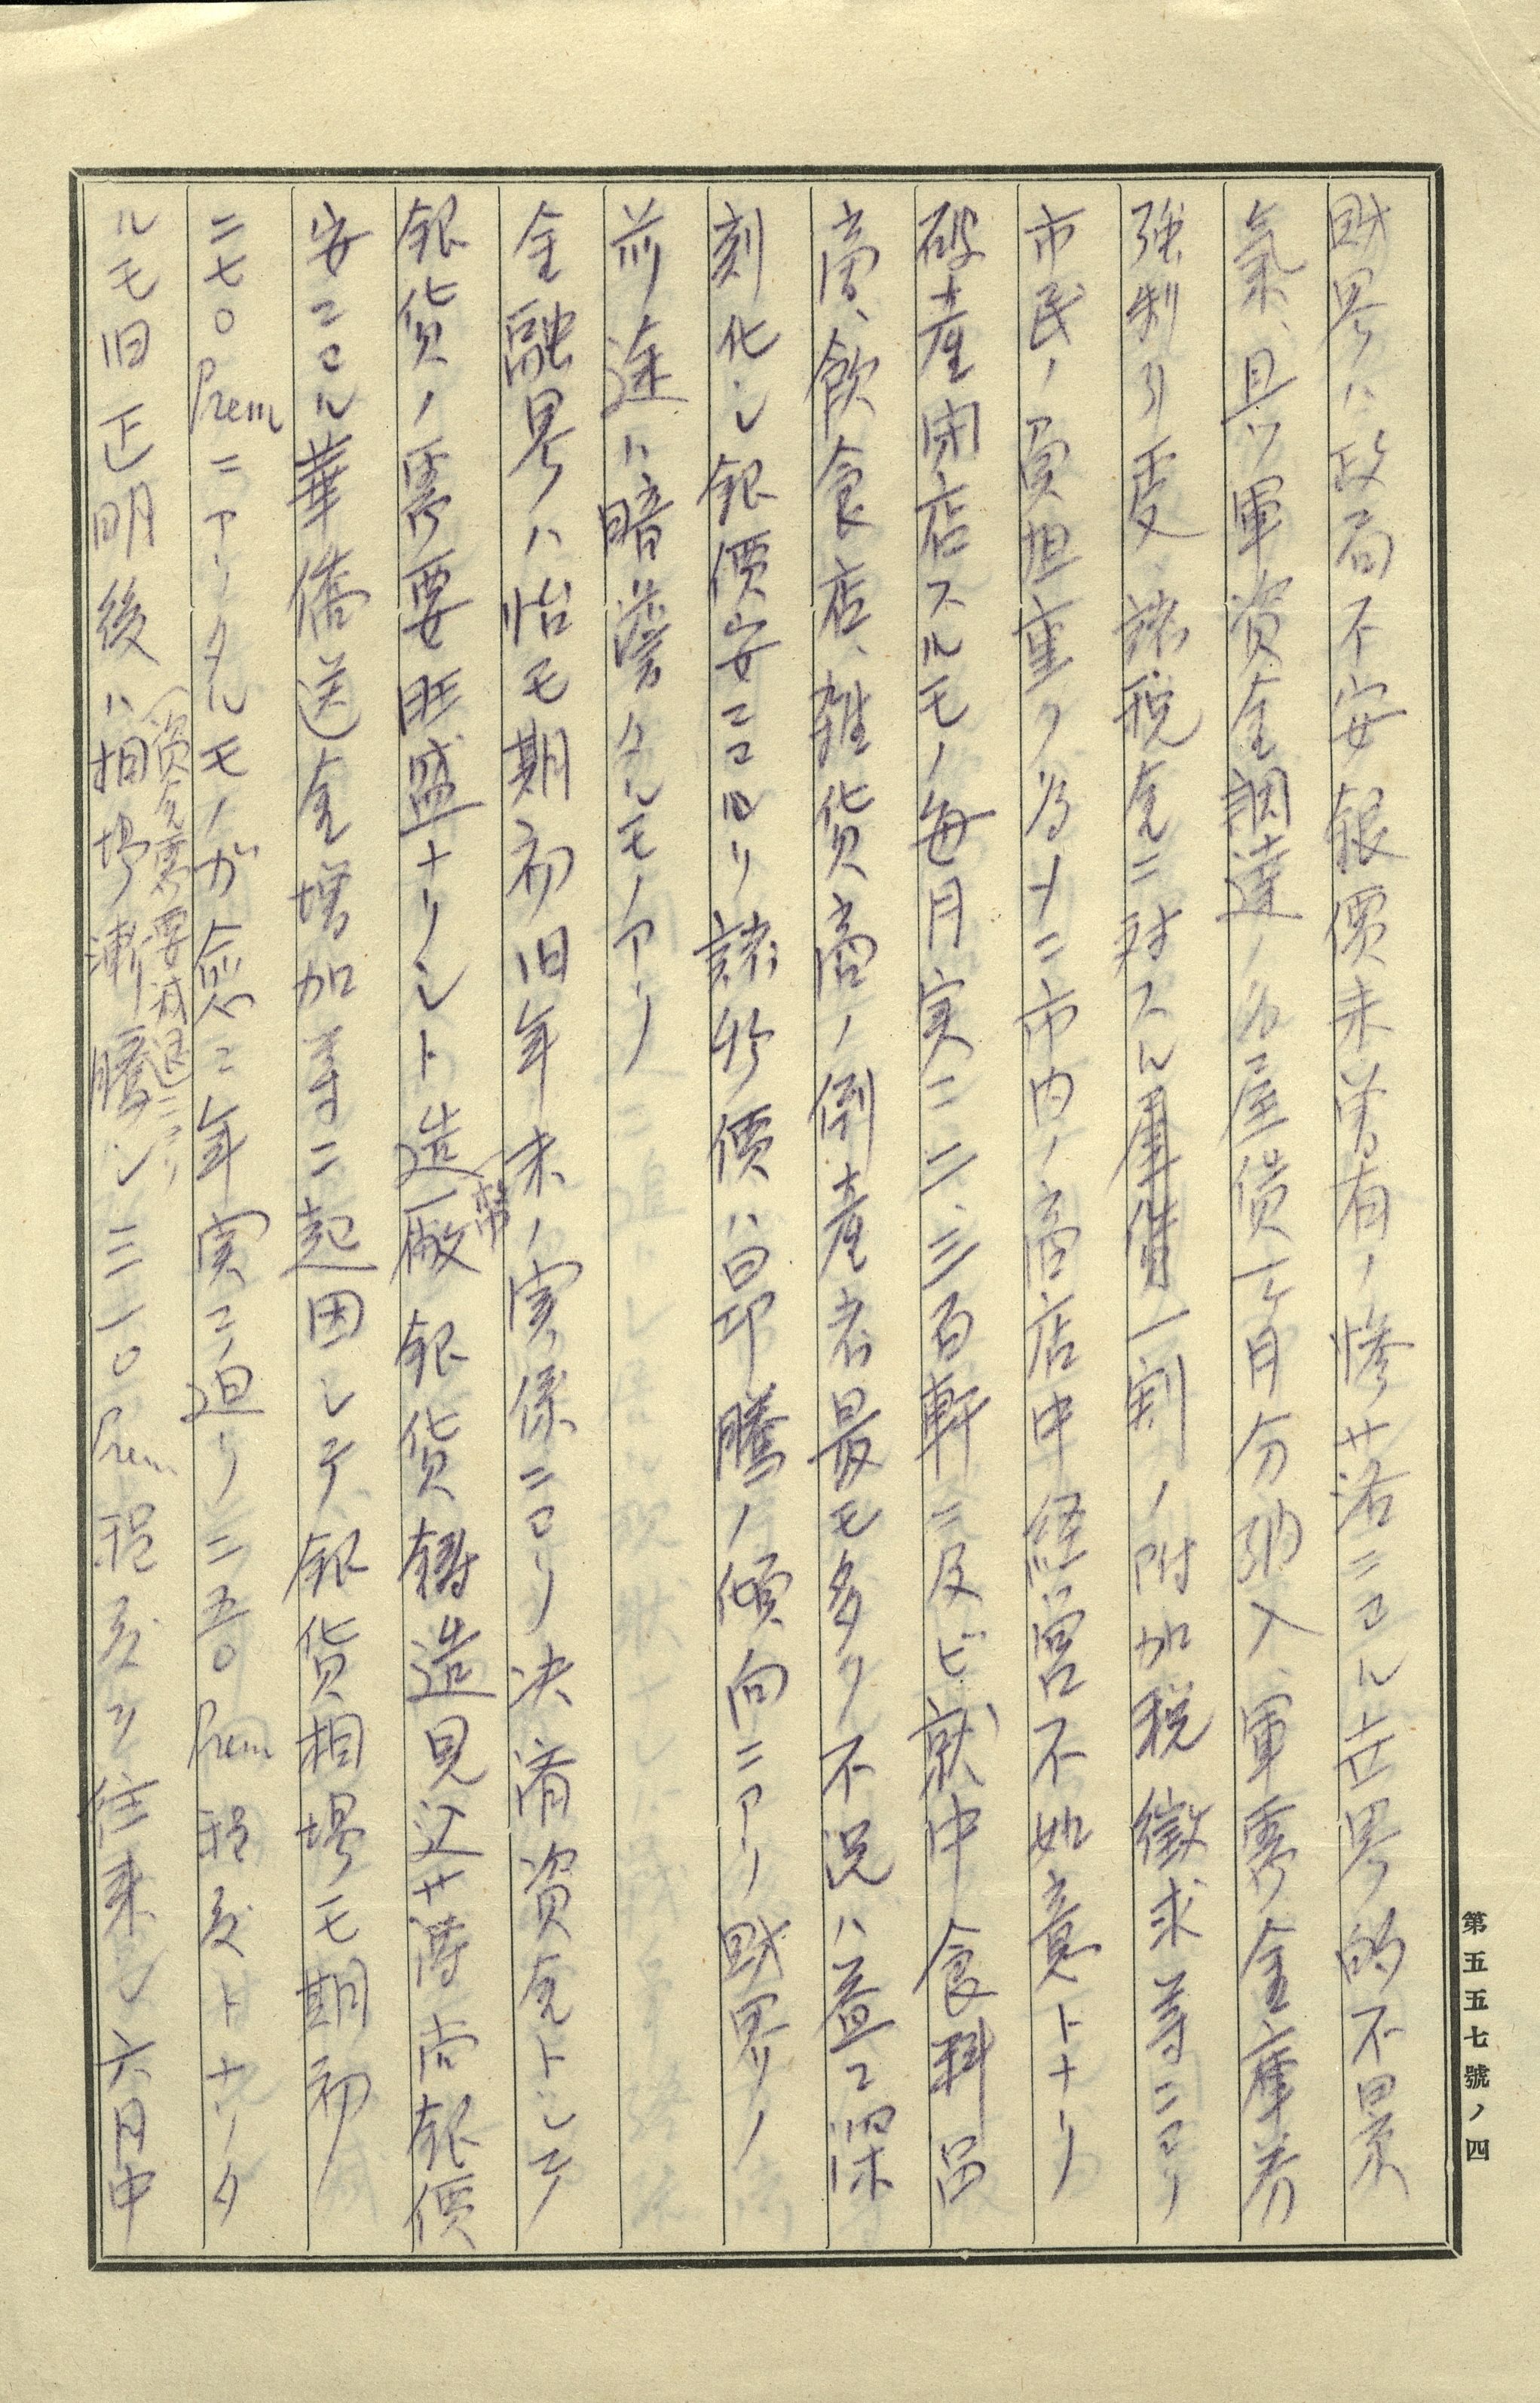 財界ハ政局不安銀價未曽有ノ惨落ニヨル世界的不景
氣、且ツ軍資金調達ノ為屋賃一ケ月分納入、軍需金庫券
強制引受、諸税金ニ対スル軍費一割ノ附加税徴求等ニヨリ
市民ノ負担重ク為メニ市内ノ商店中経営不如意トナリ
破産閉店スルモノ毎月実ニ二、三百軒ニ及ビ就中食料品
商、飲食店、雑貨商ノ倒産者最モ多ク不況ハ益々深
刻化シ銀價安ニヨリ諸物價ハ日昂騰ノ傾向ニアリ財界ノ
前途ハ暗澹タルモノアリ
金融界ハ恰モ期初旧年末ノ実係ニヨリ決済資金トシテ
銀貨ノ需要旺盛ナリシト造幣廠銀貨鋳造見込薄尚銀價
安ニヨル華僑送金増加等ニ起因シテ銀貨相場モ期初
二七〇Premニアリタルモノガ愈々年実ニ迫リ二五〇Prem程度トナリタ
ルモ旧正明後ハ(資金需要減退ニヨリ)相場漸騰シ三一〇Prem程度ヲ往来シ六月中
第五五七號ノ四